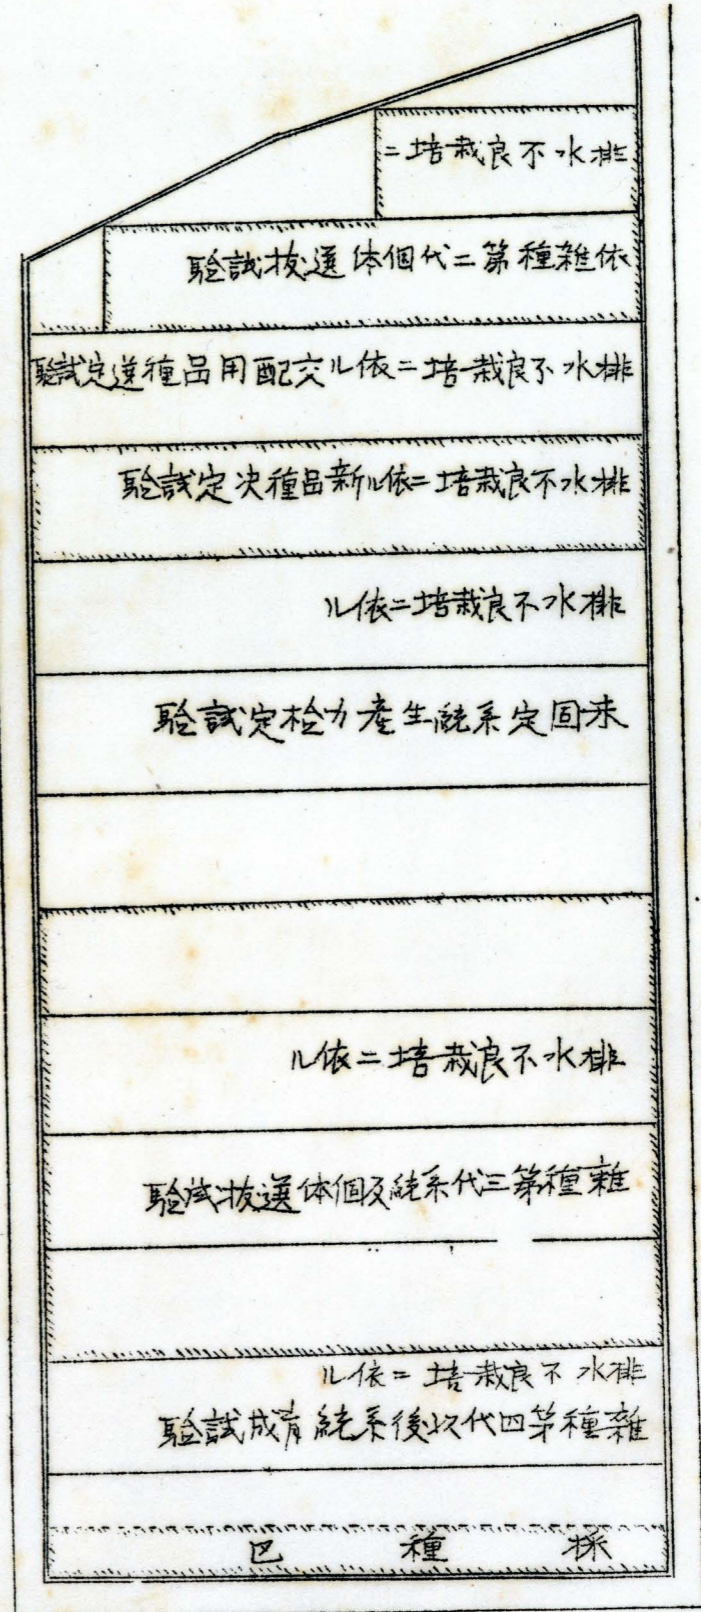 排水不良栽培ニ
依雑種第二代個体選抜試験
排水不良栽培ニ依ル交配用品種選定試験
排水不良栽培ニ依ル新品種決定試験
排水不良栽培ニ依ル
未固定系統生産力検定試験
排水不良栽培ニ依ル
雑種第三代系統及個体選抜試験
排水不良栽培ニ依ル
雑種第四代以後系統育成試験
採種巴